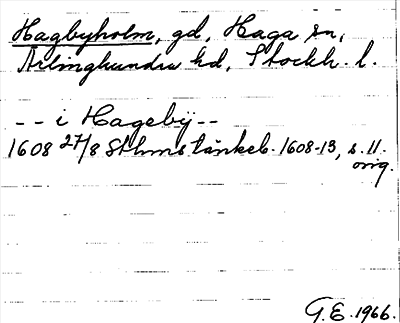 Hagbyholm, gd, Haga sn,
Ärlinghundra hd, Stockh. l.
-- i Hagebÿ --
1608 27/8 Sthms tänkeb. 1608-13, s. 11.
orig.
G. E. 1966.